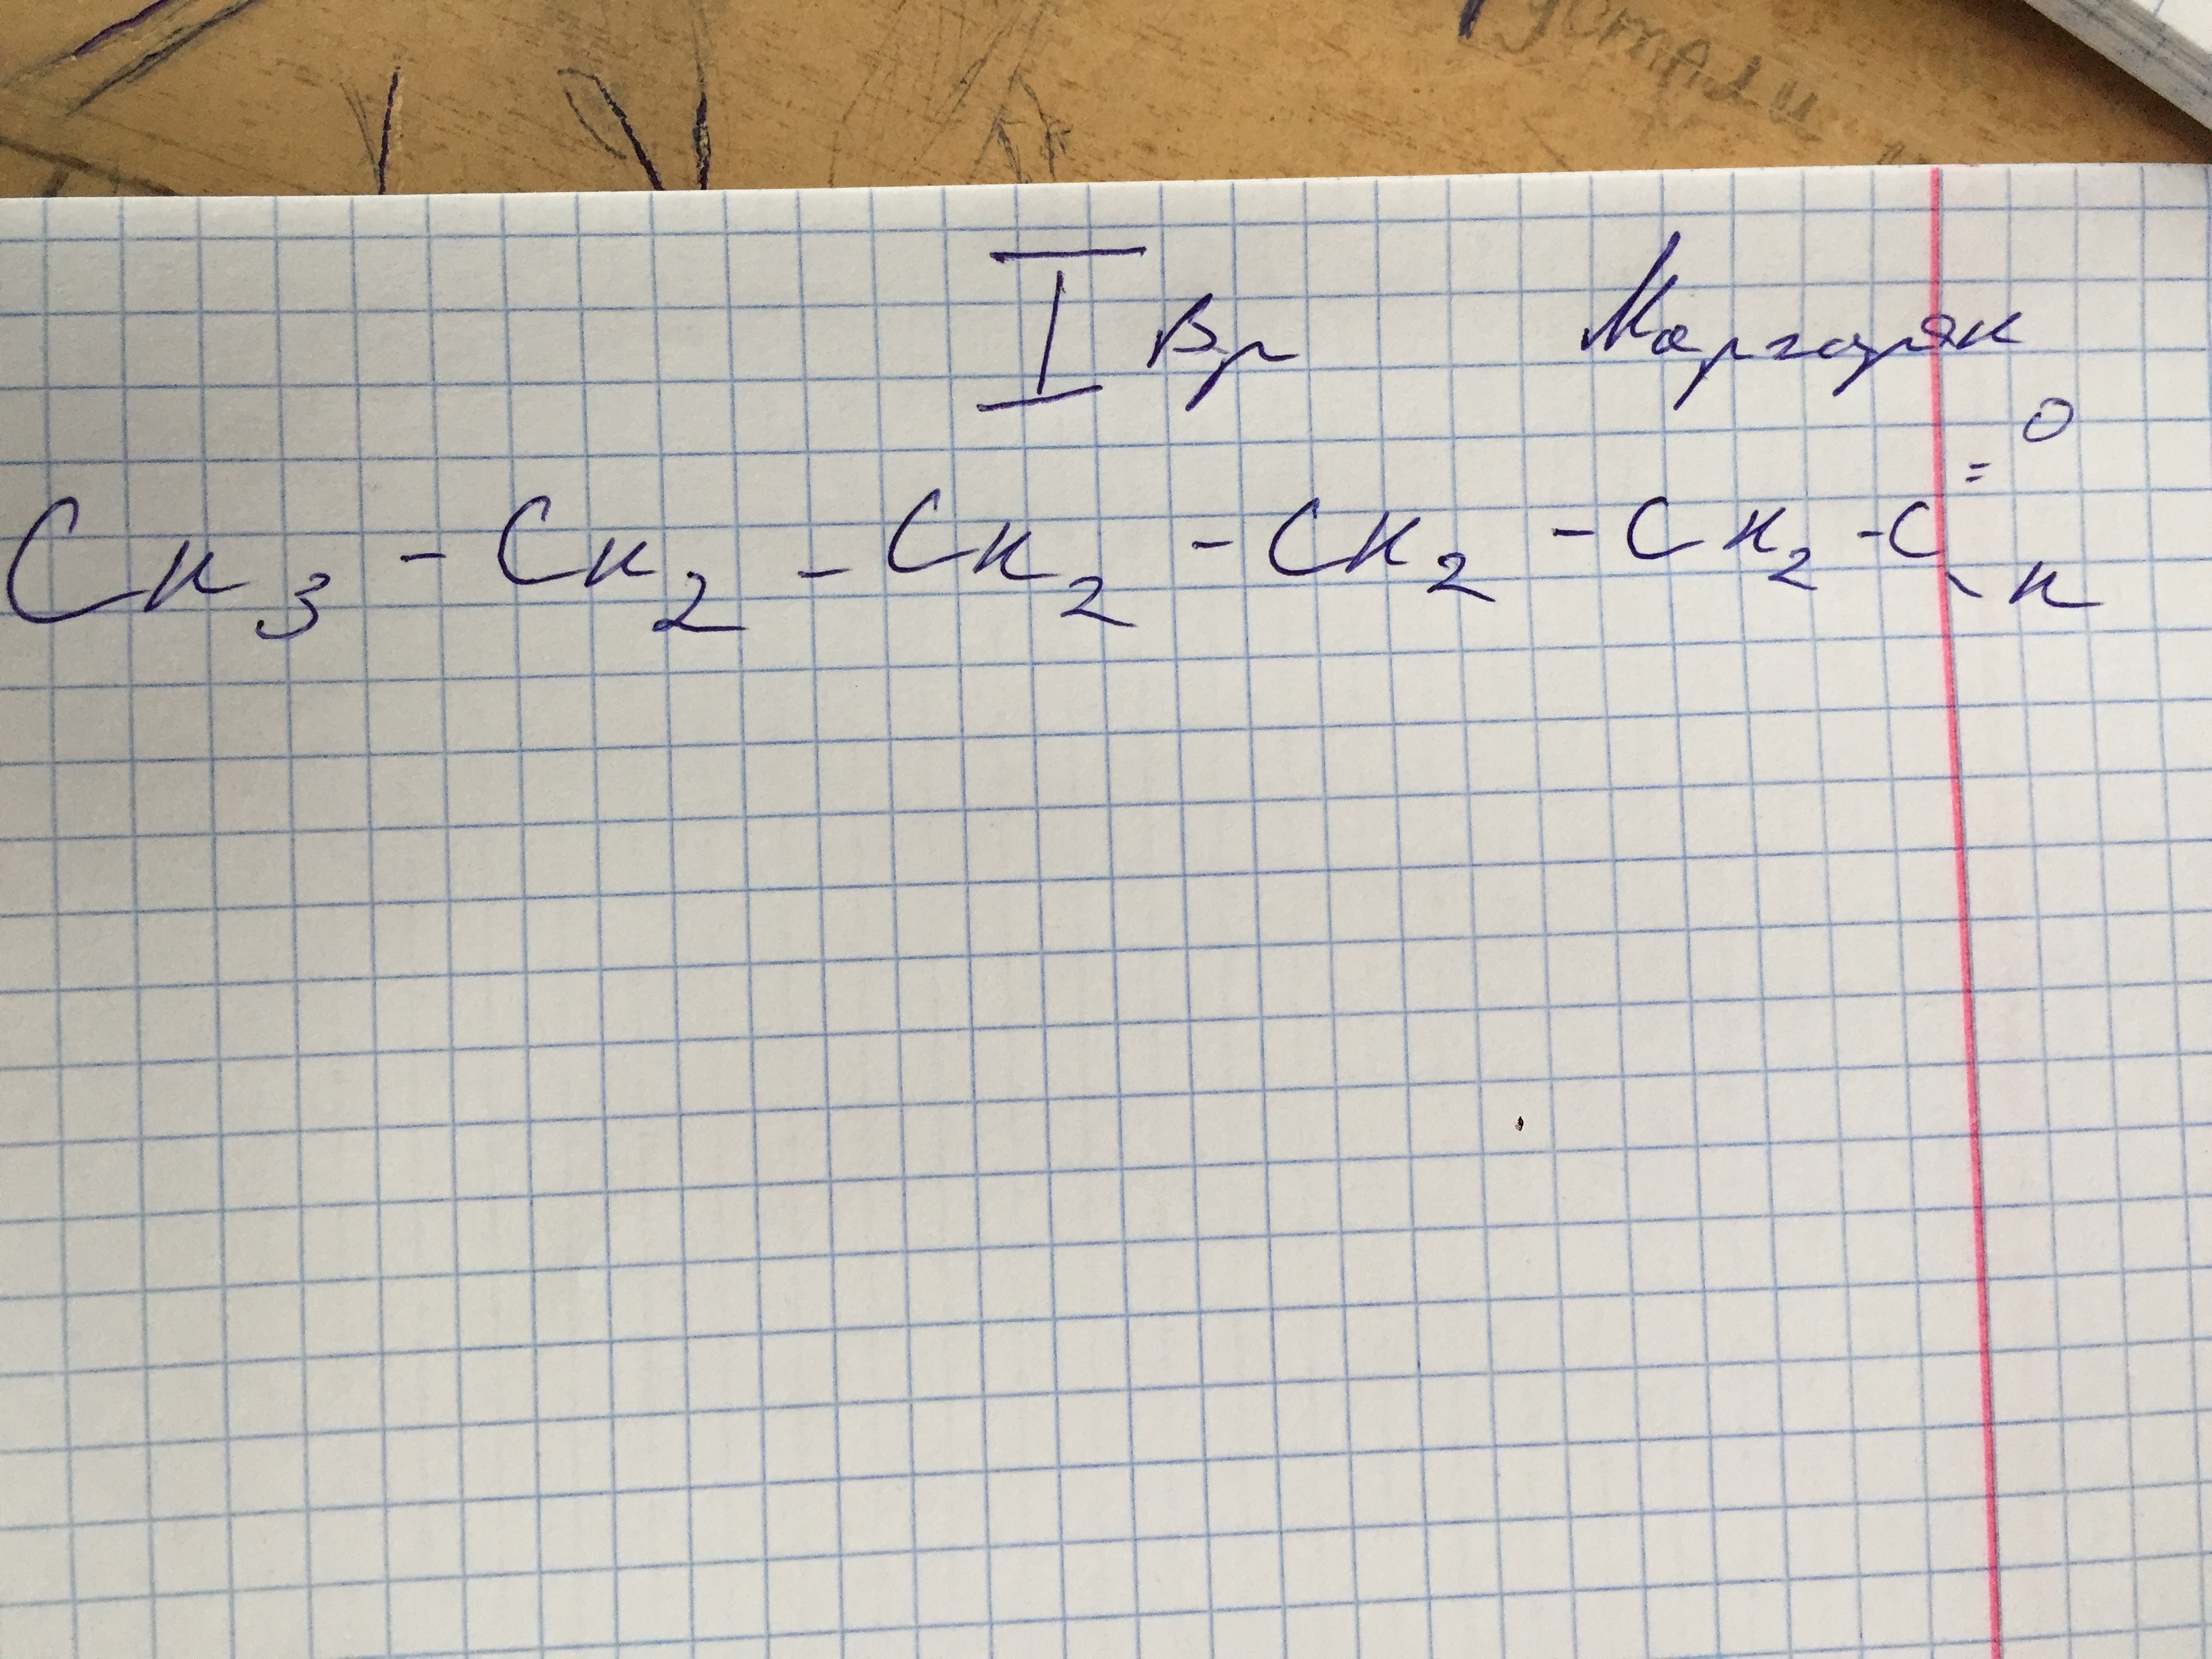 I Вр Маргарян
CH3 - CH2 - CH2 - CH2 - CH2 - C = O
H